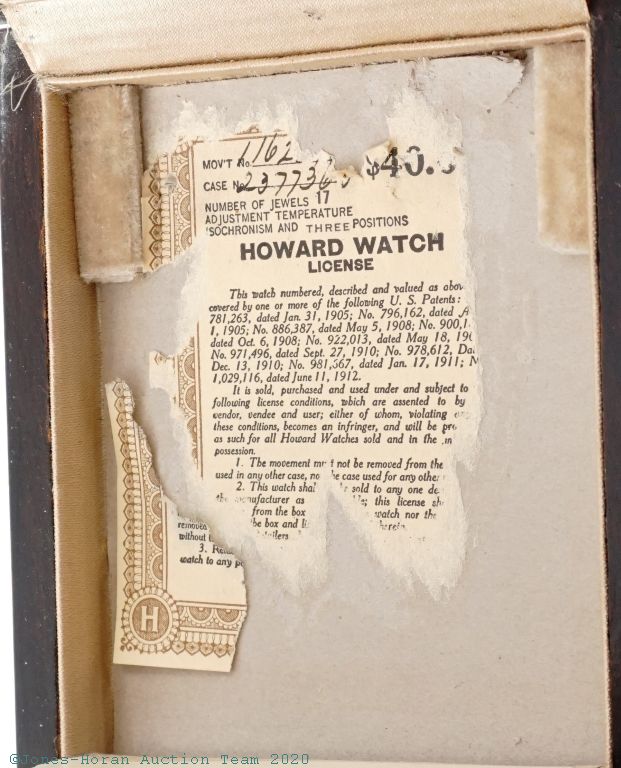 MOV'T No. 1162
$40.
CASE N 237736
NUMBER OF JEWELS 17
ADJUSTMENT TEMPERATURE
ISOCHRONISM AND THREE POSITIONS
HOWARD WATCH
LICENSE
This watch numbered, described and valued as abov
covered by one or more of the following U. S. Patents:
781,263, dated Jan. 31, 1905; No. 796,162, dated A
1, 1905; No. 886,387, dated May 5, 1908; No. 900,1
dated Oct. 6, 1908; No. 922,013, dated May 18, 190
No. 971,496, dated Sept. 27, 1910; No. 978,612, Da
Dec. 13, 1910; No. 981,567, dated Jan. 17, 1911; N
1,029,116, dated June 11, 1912.
It is sold, purchased and used under and subject to
following license conditions, which are assented to by
vendor, vendee and user; either of whom, violating
these conditions, becomes an infringer, and will be pro
as such for all Howard Watches sold and in the
possession.
1. The movement m t not be removed from the
used in any other case, no he case used for any other
2. This watch shal sold to any one de
the manufacturer as this license sh
from the box watch nor the
removed be box and li herein.
without tailers
3. Reta
watch to any pe
H
©Jones-Horan Auction Team 2020